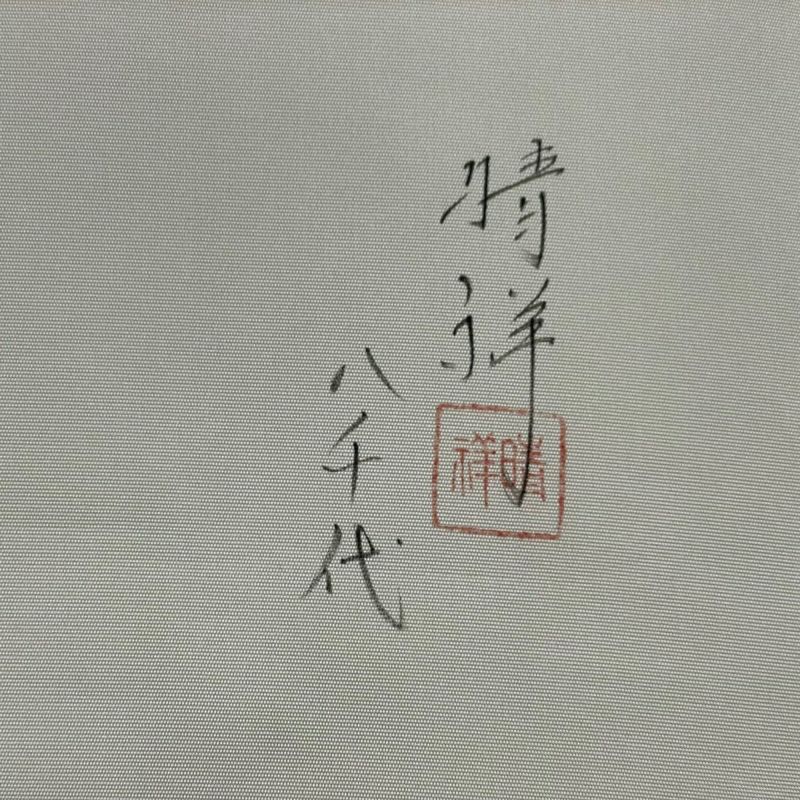 晴祥
八千代
祥晴